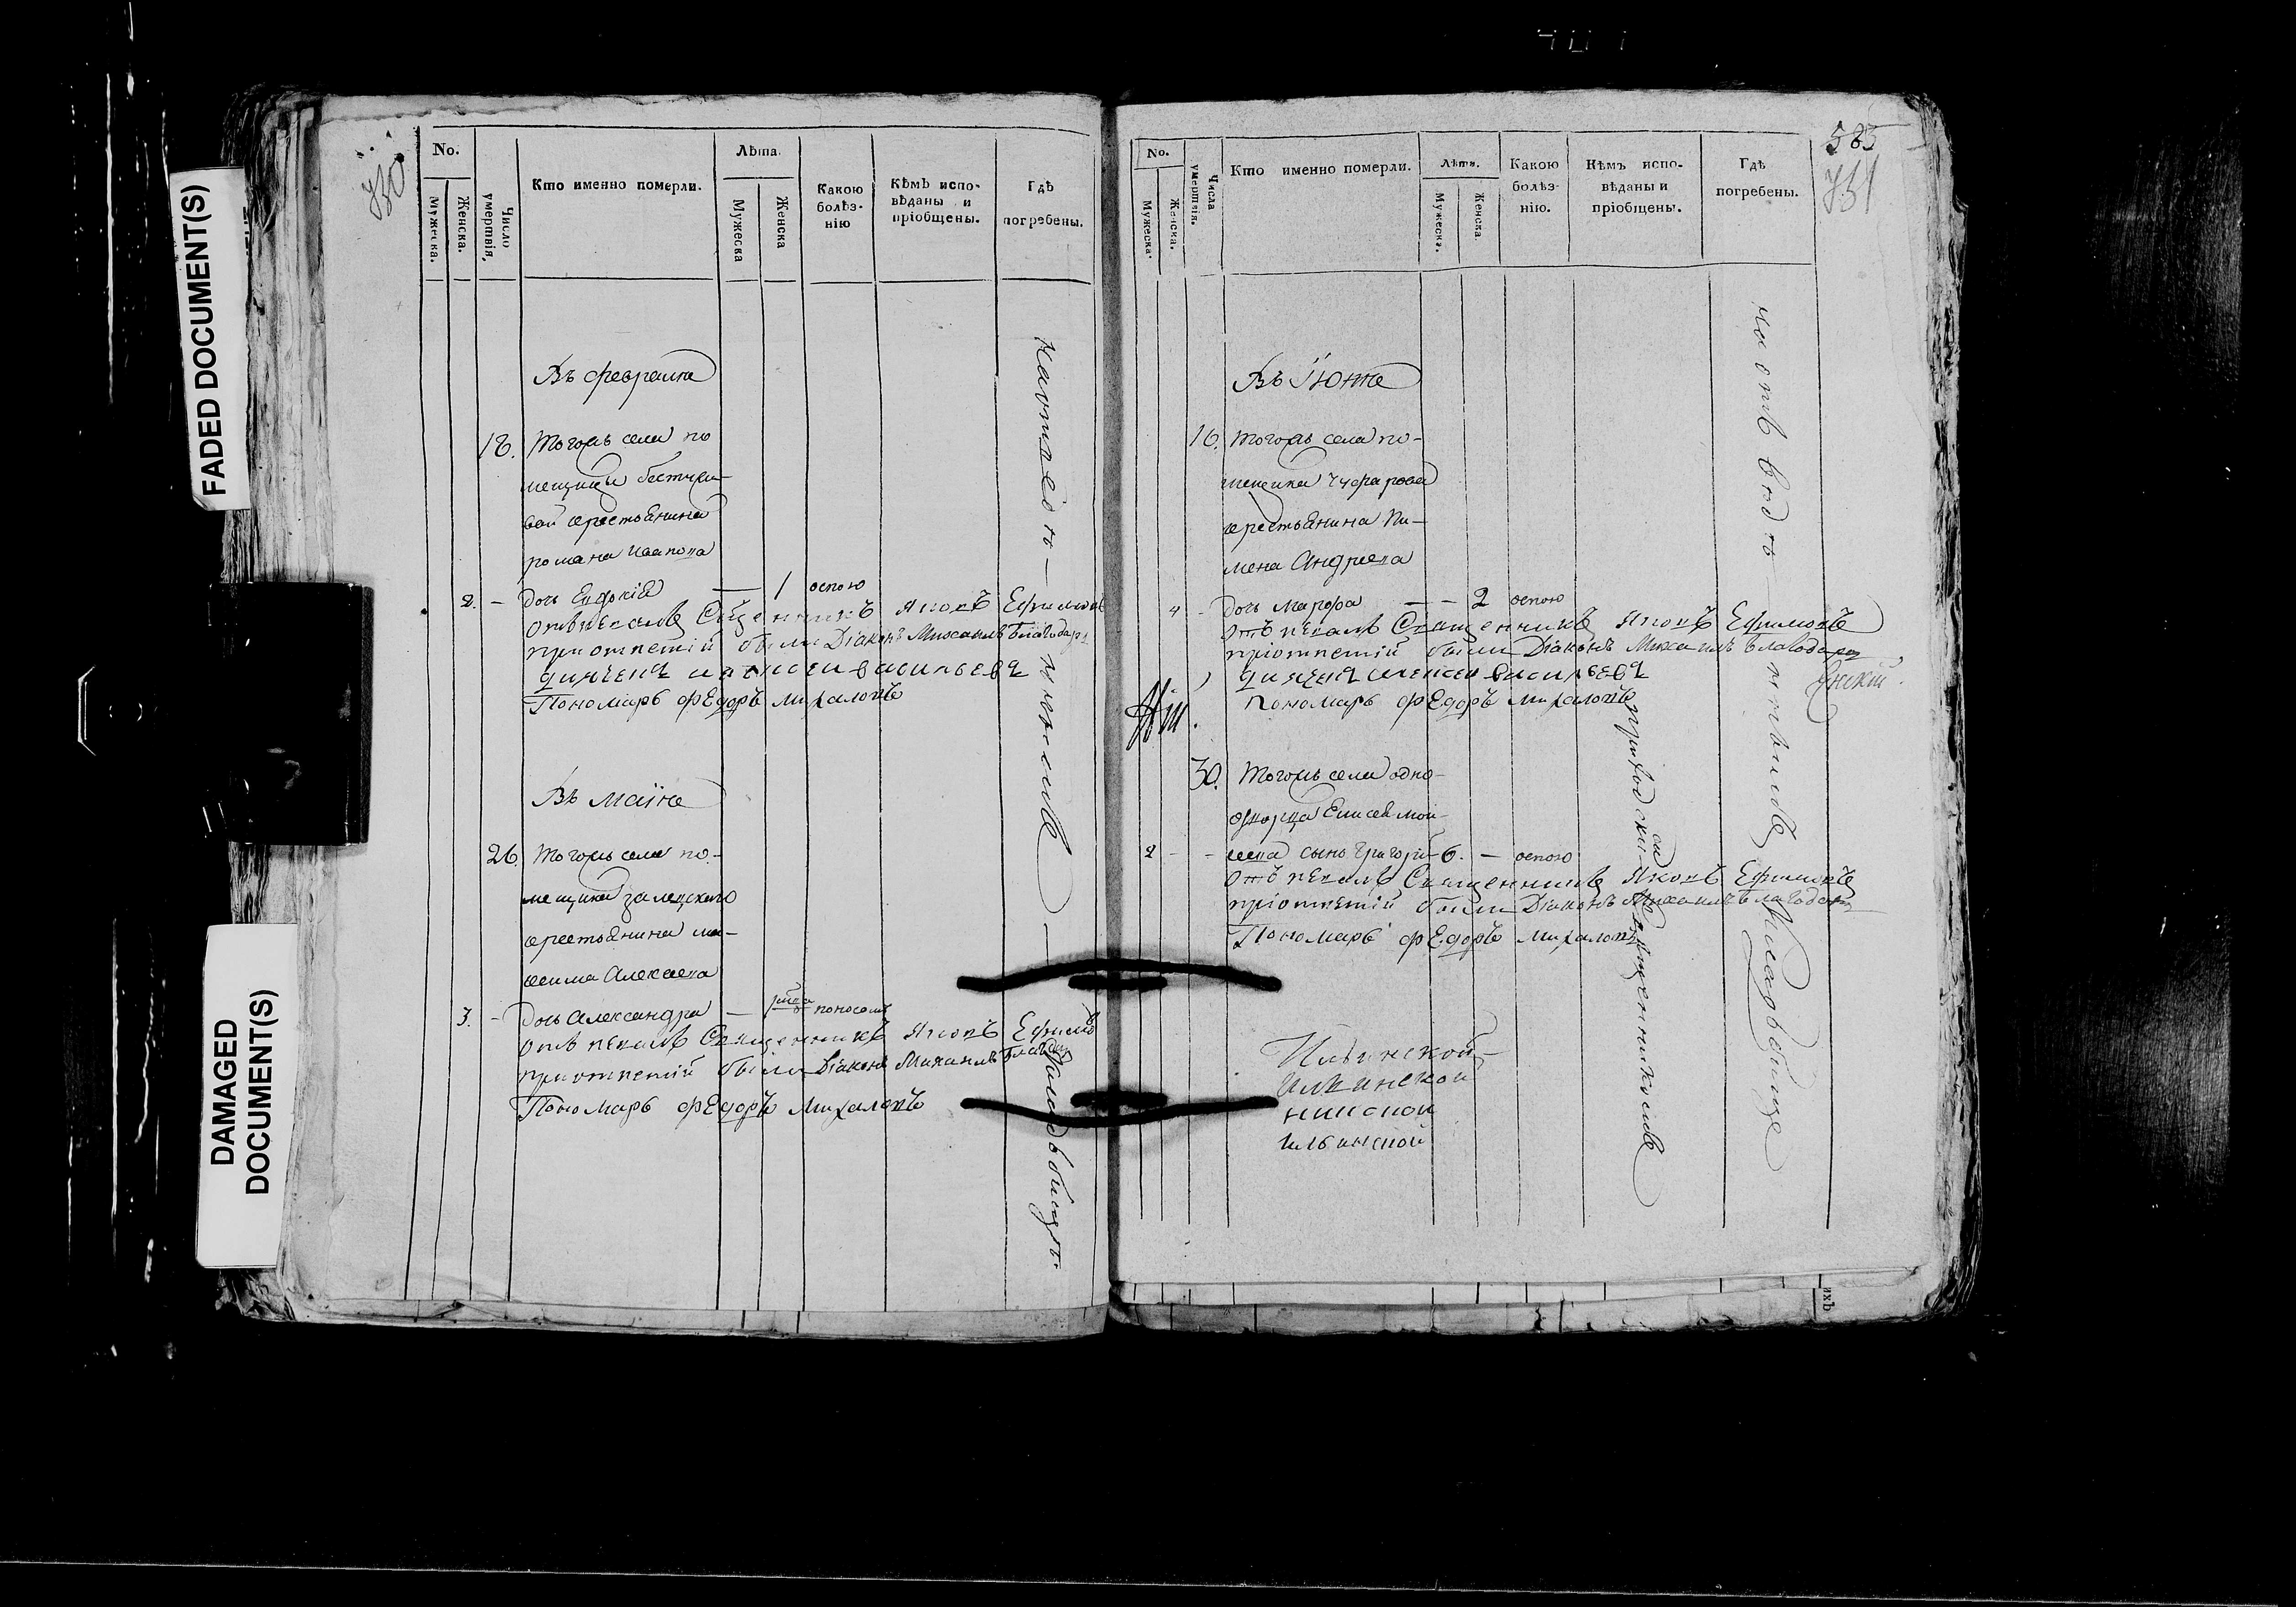 FADED DOCUMENT(S)
DAMAGED
DOCUMENT(S)
730
No.
Мужеска.
Женска.
Число умертвія.
Кто именно померли.
Лѣта.
Мужеска
Женска
Какою
болѣз-
нію
Кѣмъ испо-
вѣданы и
пріобщены.
Гдѣ
погребены.
Въ февралѣ
18. Тогожъ села по
мещицы
вой крестьянина
романа Иванова
2. - дочь Евдокія — 1 оспою
Отпевалъ Сщенникъ Яковъ Ефимовъ
приотпетіи были Діаконъ Михаилъ Благодар
дьячекъ алексеи васильевъ
Пономарь фЕдоръ михаловъ
Въ маїѣ
26. Тогожъ села по-
мещика залецкаго
крестьянина ма-
ксима Алексеева
3. - Дочь Александра — поносомъ
Отъ певалъ Священникъ Яковъ Ефимо
приотпетіи были Діаконъ Михаилъ
Пономарь фЕдоръ Михаловъ
кладъбищѣ.
583
731
No.
Мужеска.
Женска.
Числа умертвія.
Кто именно померли.
Лѣта.
Мужеска.
Женска.
Какою
болѣз-
нію.
Кѣмъ испо-
вѣданы и
пріобщены.
Гдѣ
погребены.
Въ Іюнѣ
16. тогожъ села по-
мещика Чуфарова
крестьянина Пи-
мена Андреева
4 - дочь марфа — — 2 оспою
Отъ певалъ Священникъ Яковъ Ефимовъ
пріотпетіи были Діаконъ Михаилъ благодаря
дьячекъ алексеи васильевъ
пономарь фЕдоръ михаловъ
30. Тогожъ села одно-
дворца Елисея мои-
2 - - сеева сынъ григори- 6. — оспою
Отъ певалъ Священникъ Яковъ Ефимовъ
пріотпетіи были Діаконъ Михаилъ благодар
Пономарь фЕдоръ михаловъ
приходским священникомъ
кладъбище
Ильинской
илинской
ильинской
ихъ